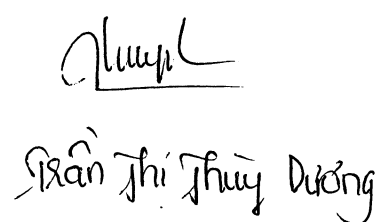 Trần Thị Thùy Dương